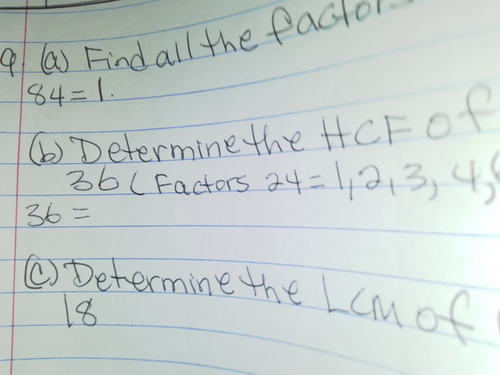 9. (a) Find all the factors
84 = 1.
(b) Determine the HCF of
36 ( Factors 24 = 1, 2, 3, 4,
36 =
(c) Determine the LCM of
18